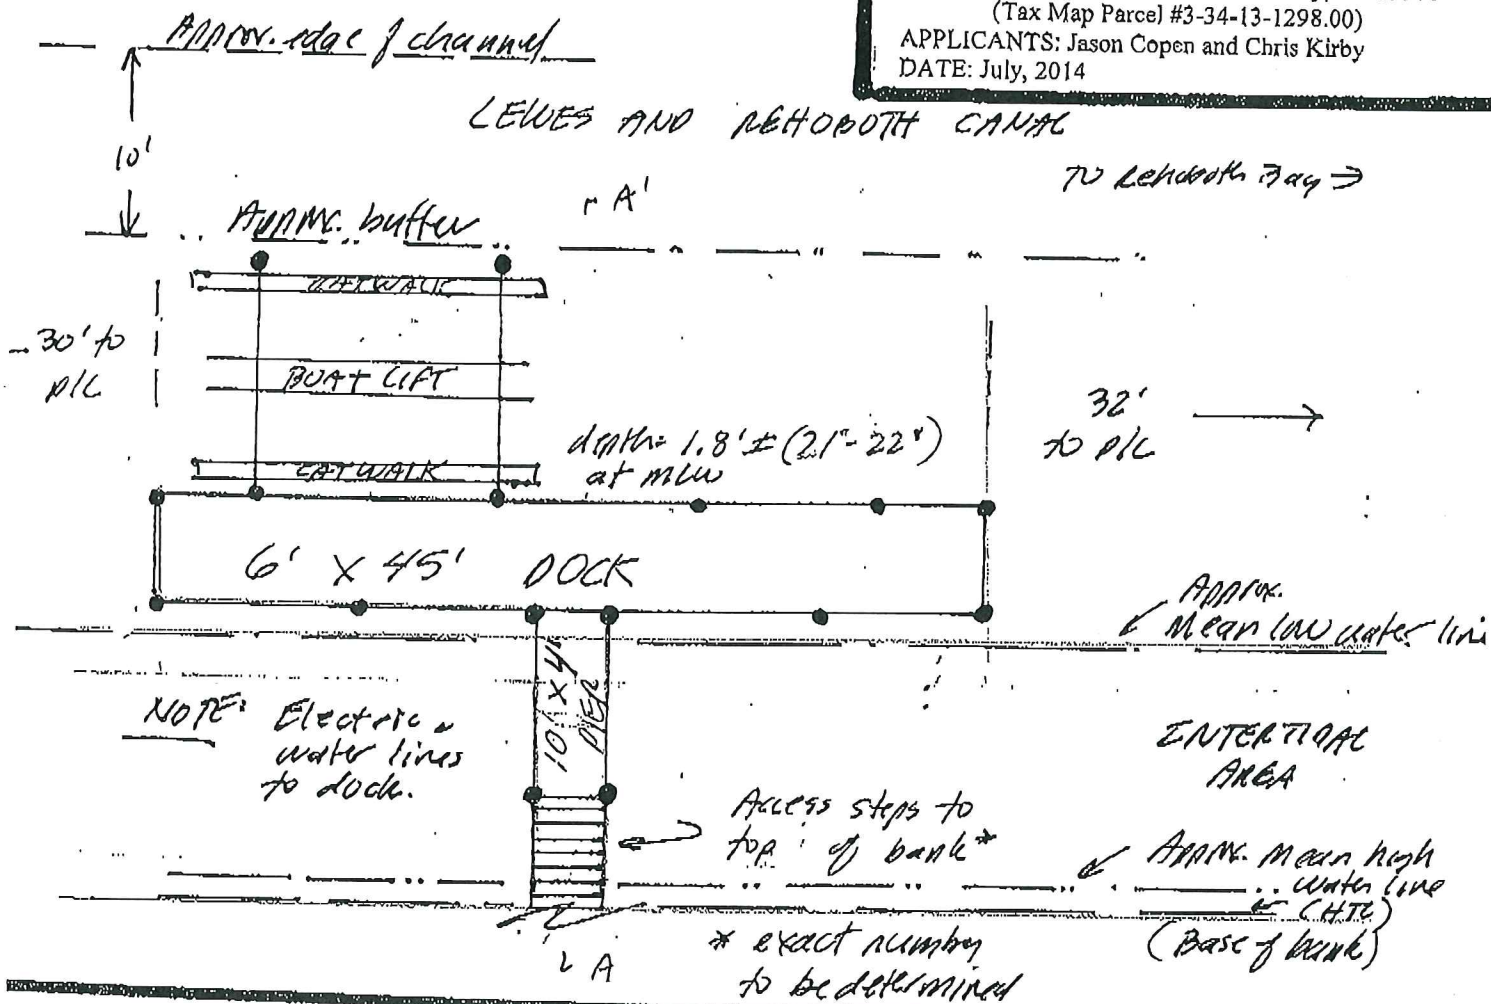 (Tax Map Parcel #3-34-13-1298.00)
APPLICANTS: Jason Copen and Chris Kirby
DATE: July, 2014
Approx. edge of channel
LEWES AND REHOBOTH CANAL
10'
To Rehoboth Bay →
A'
Approx. buffer
CATWALK
30' to
P/L
BOAT LIFT
32'
to P/L
depth= 1.8' ± (21"-22")
at MLW
CATWALK
6' X 45' DOCK
Approx.
Mean low water line
10' X 4'
PIER
NOTE: Electric &
water lines
to dock.
INTERTIDAL
AREA
Access steps to
top of bank*
Approx. mean high
water line
(HTL)
(Base of bank)
* exact number
to be determined
A